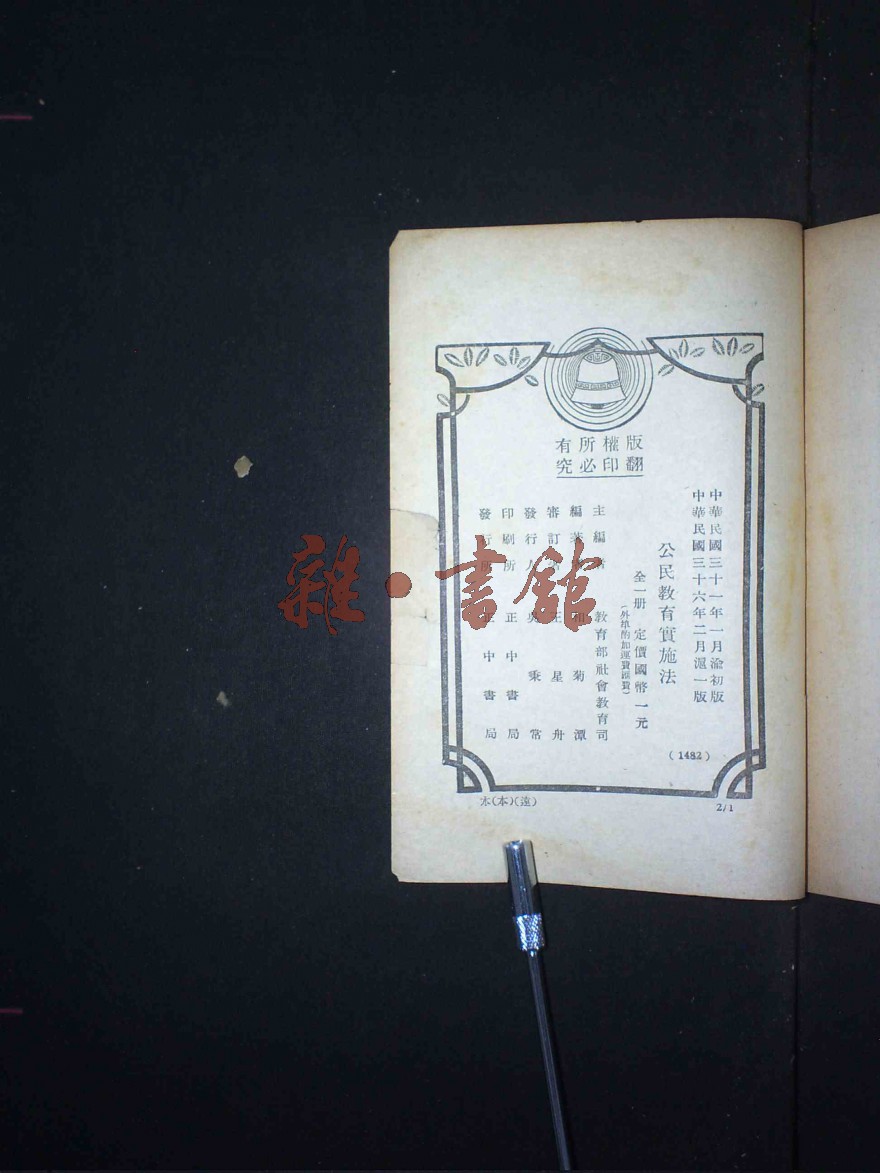 版權所有
翻印必究
中華民國三十一年一月渝初版
中華民國三十六年二月滬一版
公民教育實施法
全一册 定價國幣一元
(外埠酌加運費匯費)
主編者 教育部社會教育司
編著者 和菊潭
審訂者 王星舟
發行人 吳秉常
印刷所 正中書局
發行所 正中書局
(1482)
本(本)(遠)
2/1
雜·書館